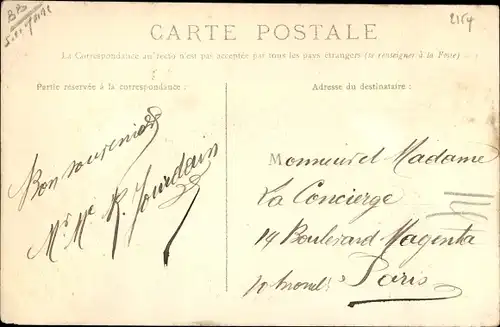 2154
CARTE POSTALE
La Correspondance au recto n'est pas acceptée par tous les pays étrangers (se renseigner à la Poste)
Partie réservée à la correspondance :
Adresse du destinataire :
Bon souvenir
Mr Me R. Jourdain
Monsieur et Madame
La Concierge
14 Boulevard Magenta
Paris